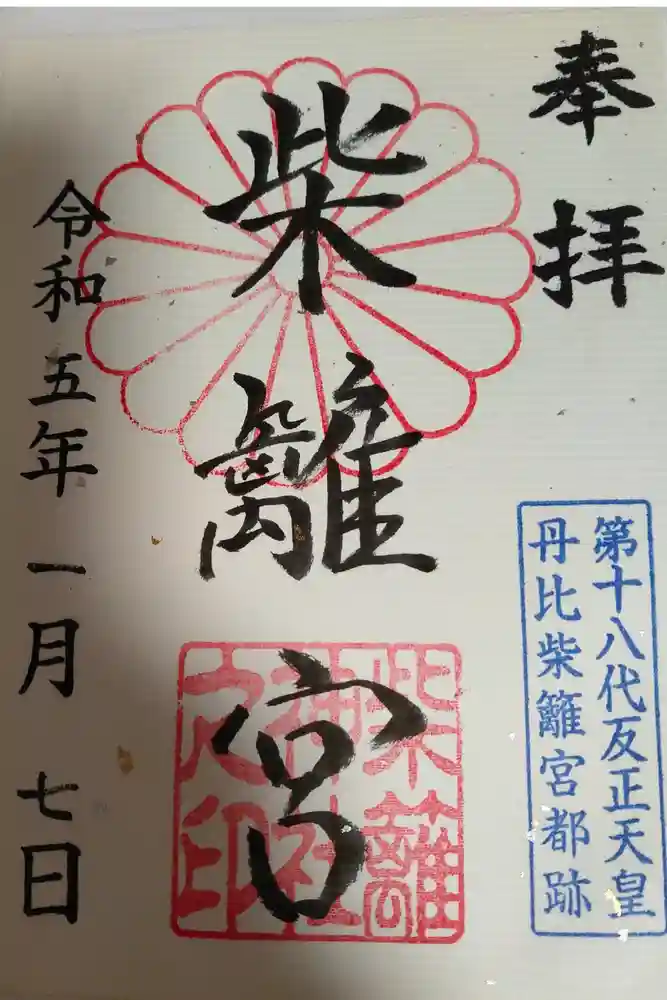 奉拝
第十八代反正天皇
丹比柴籬宮都跡
柴籬宮
柴籬
神社
之印
令和五年一月七日